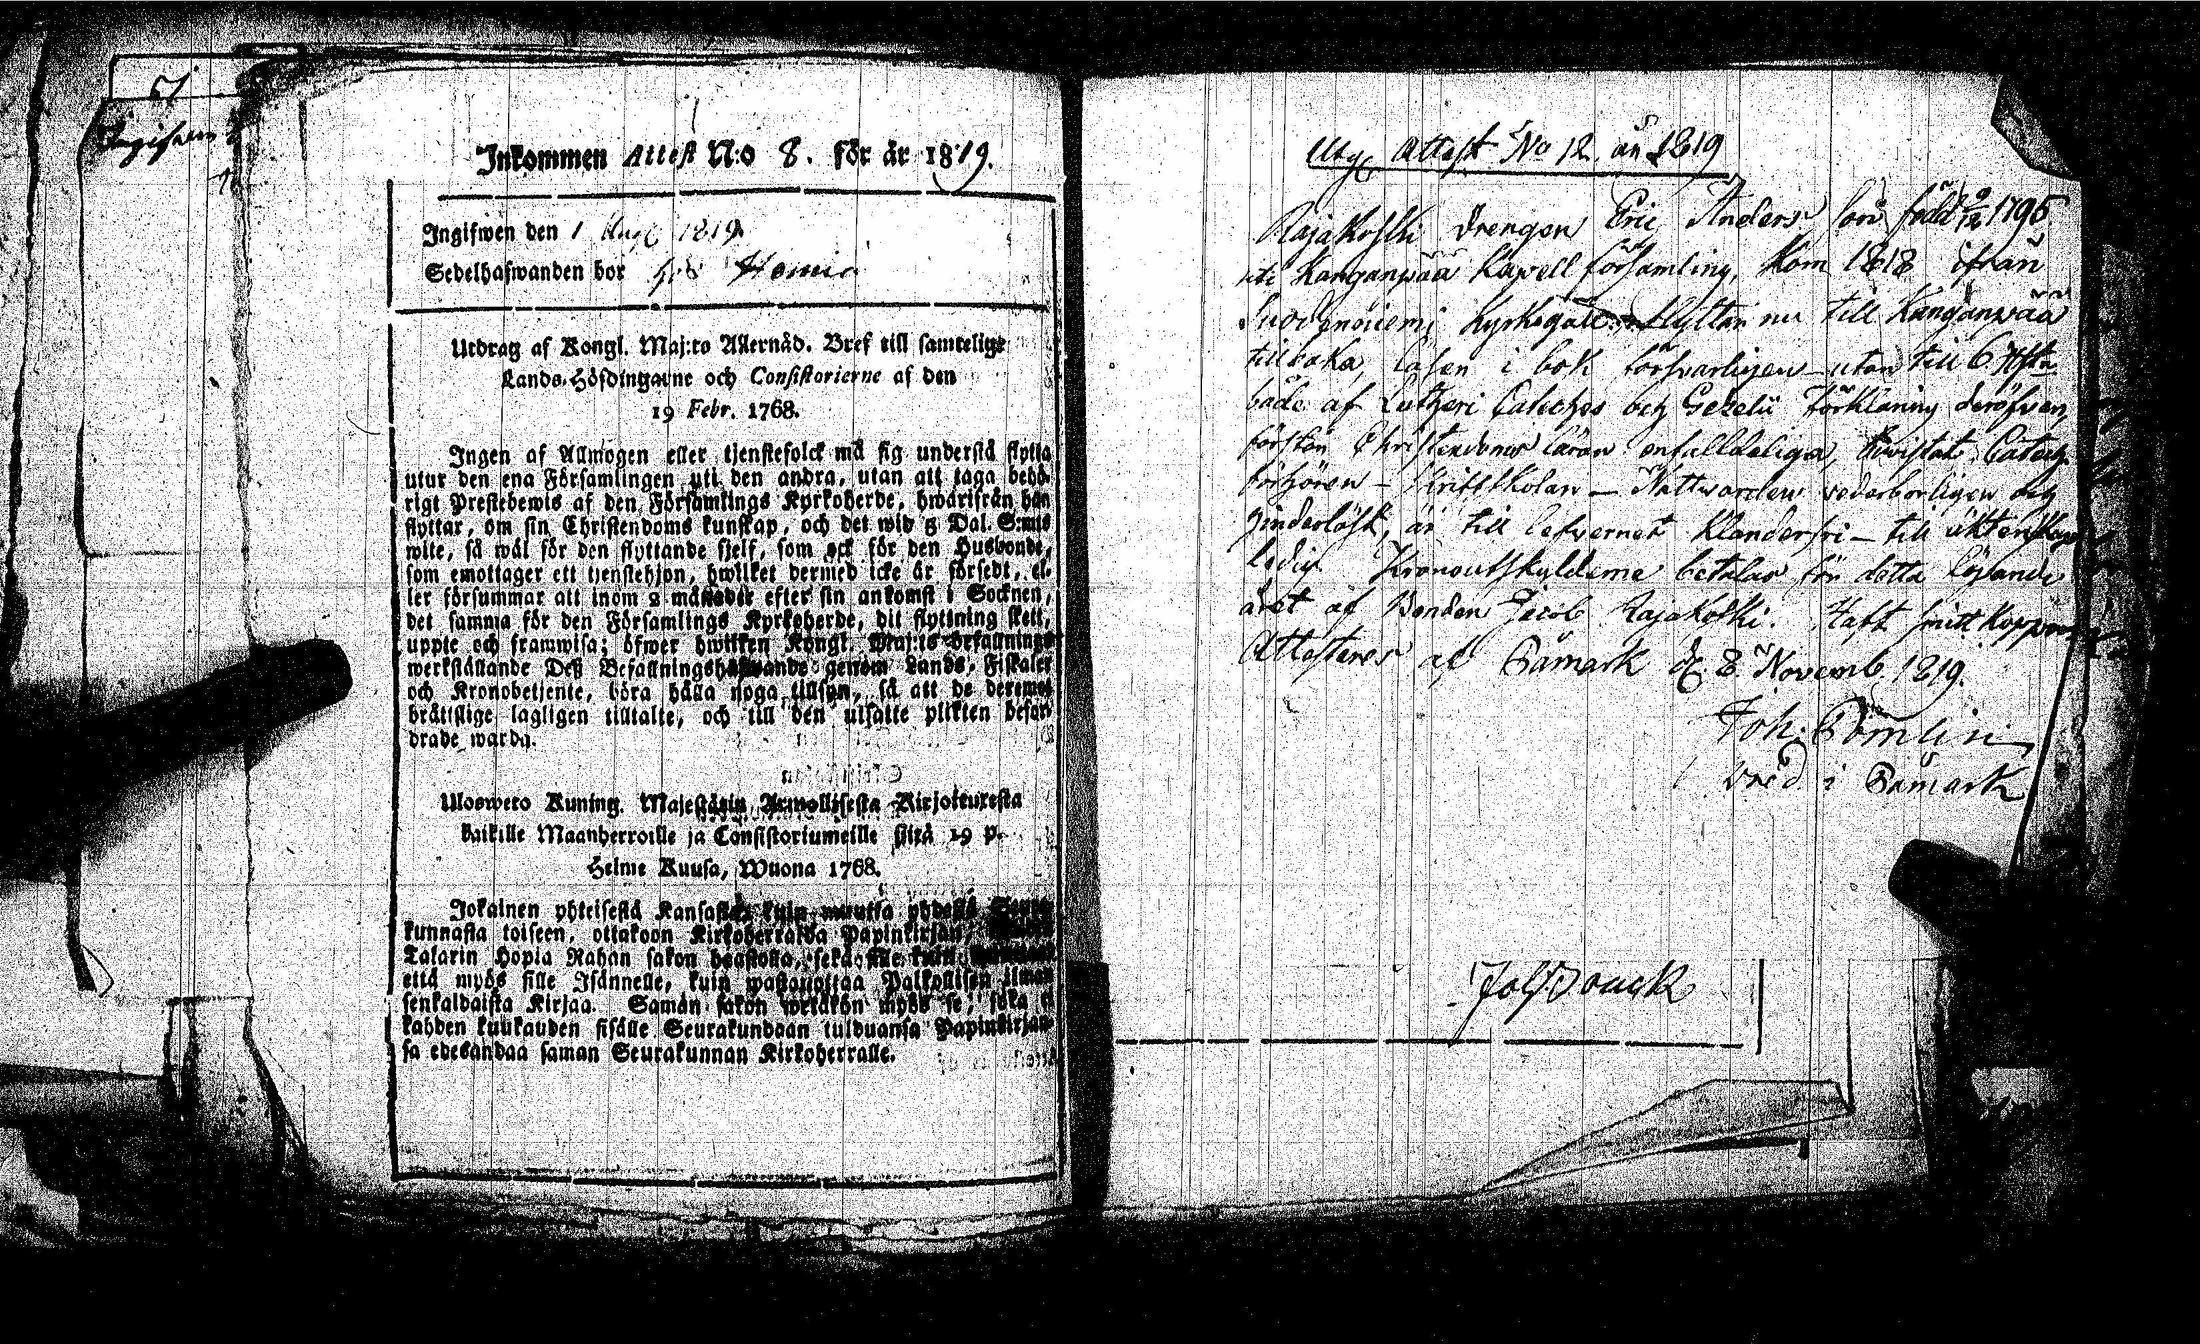 Inkommen Attest N:o 8. för år 1819.
Ingifwen den 1 1819
Sedelhafwanden bor
Utdrag af Kongl. Maj:ts Allernåd. Bref till samtelige
Lands-Höfdingarne och Consistorierne af den
19 Febr. 1768.
Ingen af Allmogen eller tjenstefolck må sig understå flytta
utur den ena Församlingen uti den andra, utan att taga behö-
rigt Prestebewis af den Församlings Kyrkoherde, hwarifrån han
flyttar, om sin Christendoms kunskap, och det wid 3 Dal. S:mts
wite, så wäl för den flyttande sjelf, som ock för den Husbonde,
som emottager ett tjenstehjon, hwilket dermed icke är försedt, el-
ler försummar att inom 2 månader efter sin ankomst i Socknen,
det samma för den Församlings Kyrkoherde, dit flyttning skett,
uppte och framwisa; öfwer hwilken Kongl. Maj:ts befallnings
werkställande Deß Befallningshafwande genom Lands-Fiskaler
och Kronobetjente, böra hålla noga tillsyn, så att de deremot
bråttslige lagligen tilltalte, och till den utsatte plikten befor-
drade warda.
Uloswero Kuning. Majestätin Armollisesta Kirjoituxesta
kaikille Maanherroille ja Consistoriumeille siitä 19 p.
Helme Kuusa, Wuona 1768.
Jokainen yhteisestä Kansasta, kuin muutta yhdestä
kunnasta toiseen, ottakoon Kirkoherralda Papinkirjan,
Talarin Hopia Rahan sakon haastolla, sekä sille kuin
että myös sille Isännelle, kuin wastanottaa Palkollisen ilman
senkaldaista Kirjaa. Saman sakon wetäkön myös se, joka ei
kahden kuukauden sisälle Seurakundaan tulduansa Papinkirjan-
sa edesandaa saman Seurakunnan Kirkoherralle.
Utg. Attest No 12 år 1819
Rajakoski Drengen Eric Anders son född 9/12 1795
uti Kanganpää Kapell församling, Kom 1818 ifrån
Suodenniemi Kyrkogäll flyttar nu till Kanganpää
tillbaka, läser i bok försvarligen utan till
både af Lutheri Catechs och Gezelii Förklaring deröfver,
förstår Christendoms läran enfalldeliga, bevistat Catech
förhören – Skriftskolan – Nattwarden vederbörligen och
hinderlöst, är till lefvernet klanderfri – till äktenskap
ledig Kronoutskylderne betalas för detta löpande
året af Bonden Jacob Rajakoski. Haft smittkoppor
Attesteras af Påmark d. 8 Novemb. 1819.
Joh: Pomlin
i Påmark